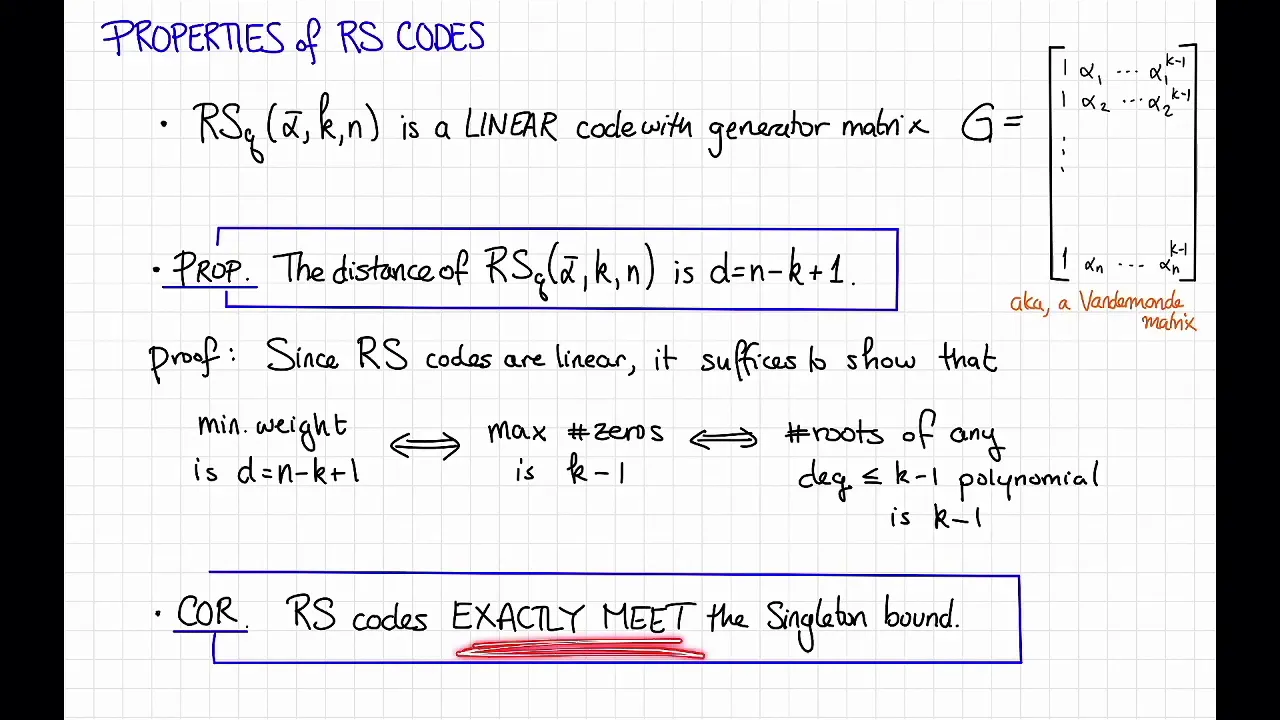 PROPERTIES of RS CODES
• RS_q(ᾱ, k, n) is a LINEAR code with generator matrix G =
1 α₁ ⋯ α₁^{k-1}
1 α₂ ⋯ α₂^{k-1}
⋮
1 αₙ ⋯ αₙ^{k-1}
aka, a Vandermonde
matrix
• PROP. The distance of RS_q(ᾱ, k, n) is d=n-k+1.
proof: Since RS codes are linear, it suffices to show that
min. weight
is d=n-k+1
⟺
max #zeros
is k-1
⟺
#roots of any
deg ≤ k-1 polynomial
is k-1
• COR. RS codes EXACTLY MEET the Singleton bound.